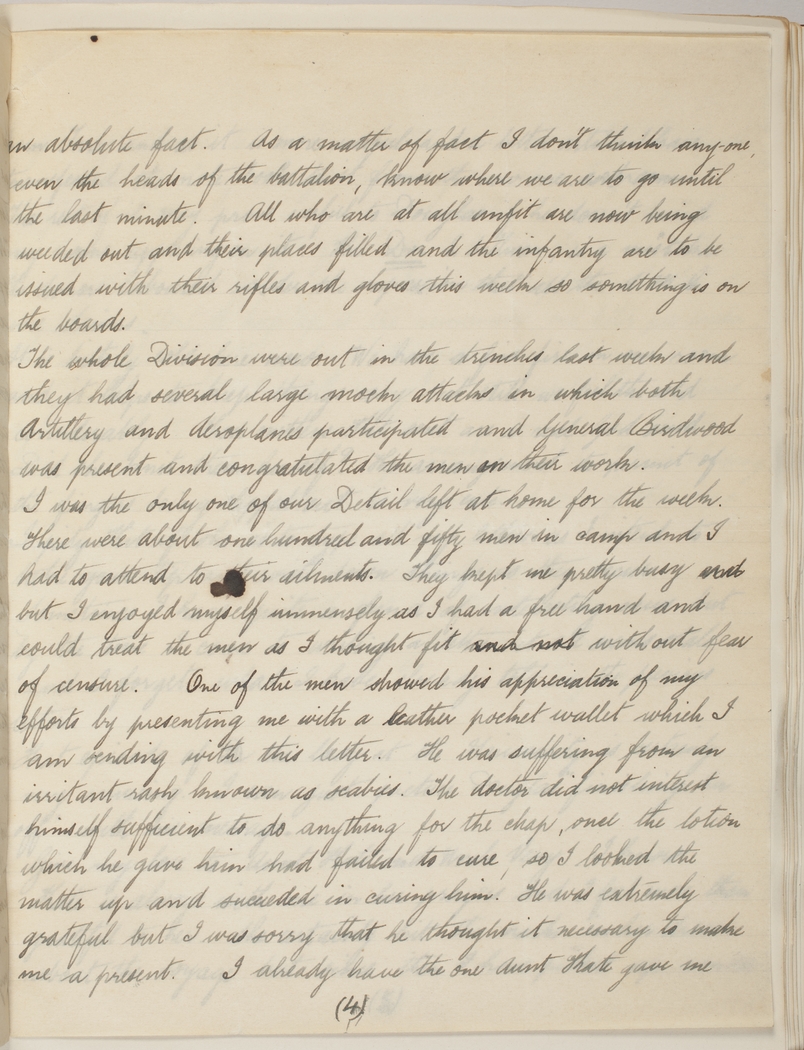 an absolute fact. As a matter of fact I don't think any-one,
even the heads of the battalion, know where we are to go until
the last minute. All who are at all unfit are now being
weeded out and their places filled and the infantry are to be
issued with their rifles and gloves this week so something is on
the boards.
The whole Division were out in the trenches last week and
they had several large mock attacks in which both
Artillery and aeroplanes participated and General Birdwood
was present and congratulated the men on their work.
I was the only one of our Detail left at home for the week.
There were about one hundred and fifty men in camp and I
had to attend to their ailments. They kept me pretty busy and
but I enjoyed myself immensely as I had a free hand and
could treat the men as I thought fit and not without fear
of censure. One of the men showed his appreciation of my
efforts by presenting me with a leather pocket wallet which I
am sending with this letter. He was suffering from an
irritant rash known as scabies. The doctor did not interest
himself sufficient to do anything for the chap, once the lotion
which he gave him had failed to cure, so I looked the
matter up and succeeded in curing him. He was extremely
grateful but I was sorry that he thought it necessary to make
me a present. I already have the one Aunt Kate gave me
(4)